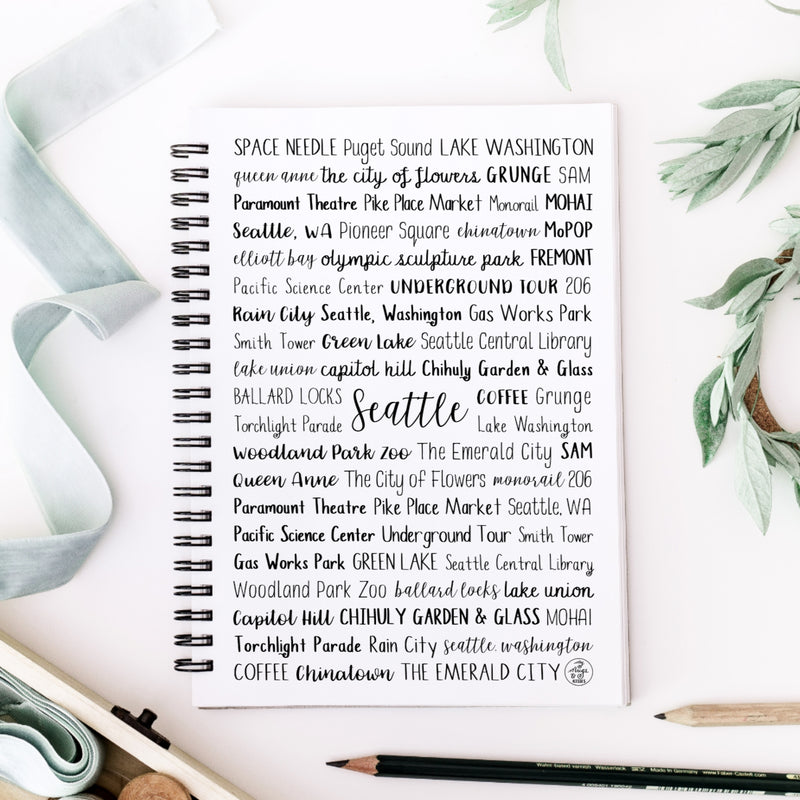 SPACE NEEDLE Puget Sound LAKE WASHINGTON
queen anne the city of flowers GRUNGE SAM
Paramount Theatre Pike Place Market Monorail MOHAI
Seattle, WA Pioneer Square chinatown MoPOP
elliott bay olympic sculpture park FREMONT
Pacific Science Center UNDERGROUND TOUR 206
Rain City Seattle, Washington Gas Works Park
Smith Tower Green Lake Seattle Central Library
lake union capitol hill Chihuly Garden & Glass
BALLARD LOCKS COFFEE Grunge
Seattle
Torchlight Parade Lake Washington
Woodland Park Zoo The Emerald City SAM
Queen Anne The City of Flowers monorail 206
Paramount Theatre Pike Place Market Seattle, WA
Pacific Science Center Underground Tour Smith Tower
Gas Works Park GREEN LAKE Seattle Central Library
Woodland Park Zoo ballard locks lake union
Capitol Hill CHIHULY GARDEN & GLASS MOHAI
Torchlight Parade Rain City seattle, washington
COFFEE Chinatown THE EMERALD CITY
Water-based varnish Made in Germany www.Faber-Castell.com